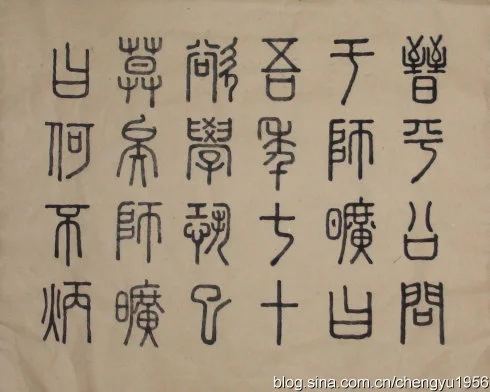 晉平公問
于師曠曰
吾年七十
欲學恐已
莫矣師曠
曰何不炳
blog.sina.com.cn/chengyu1956